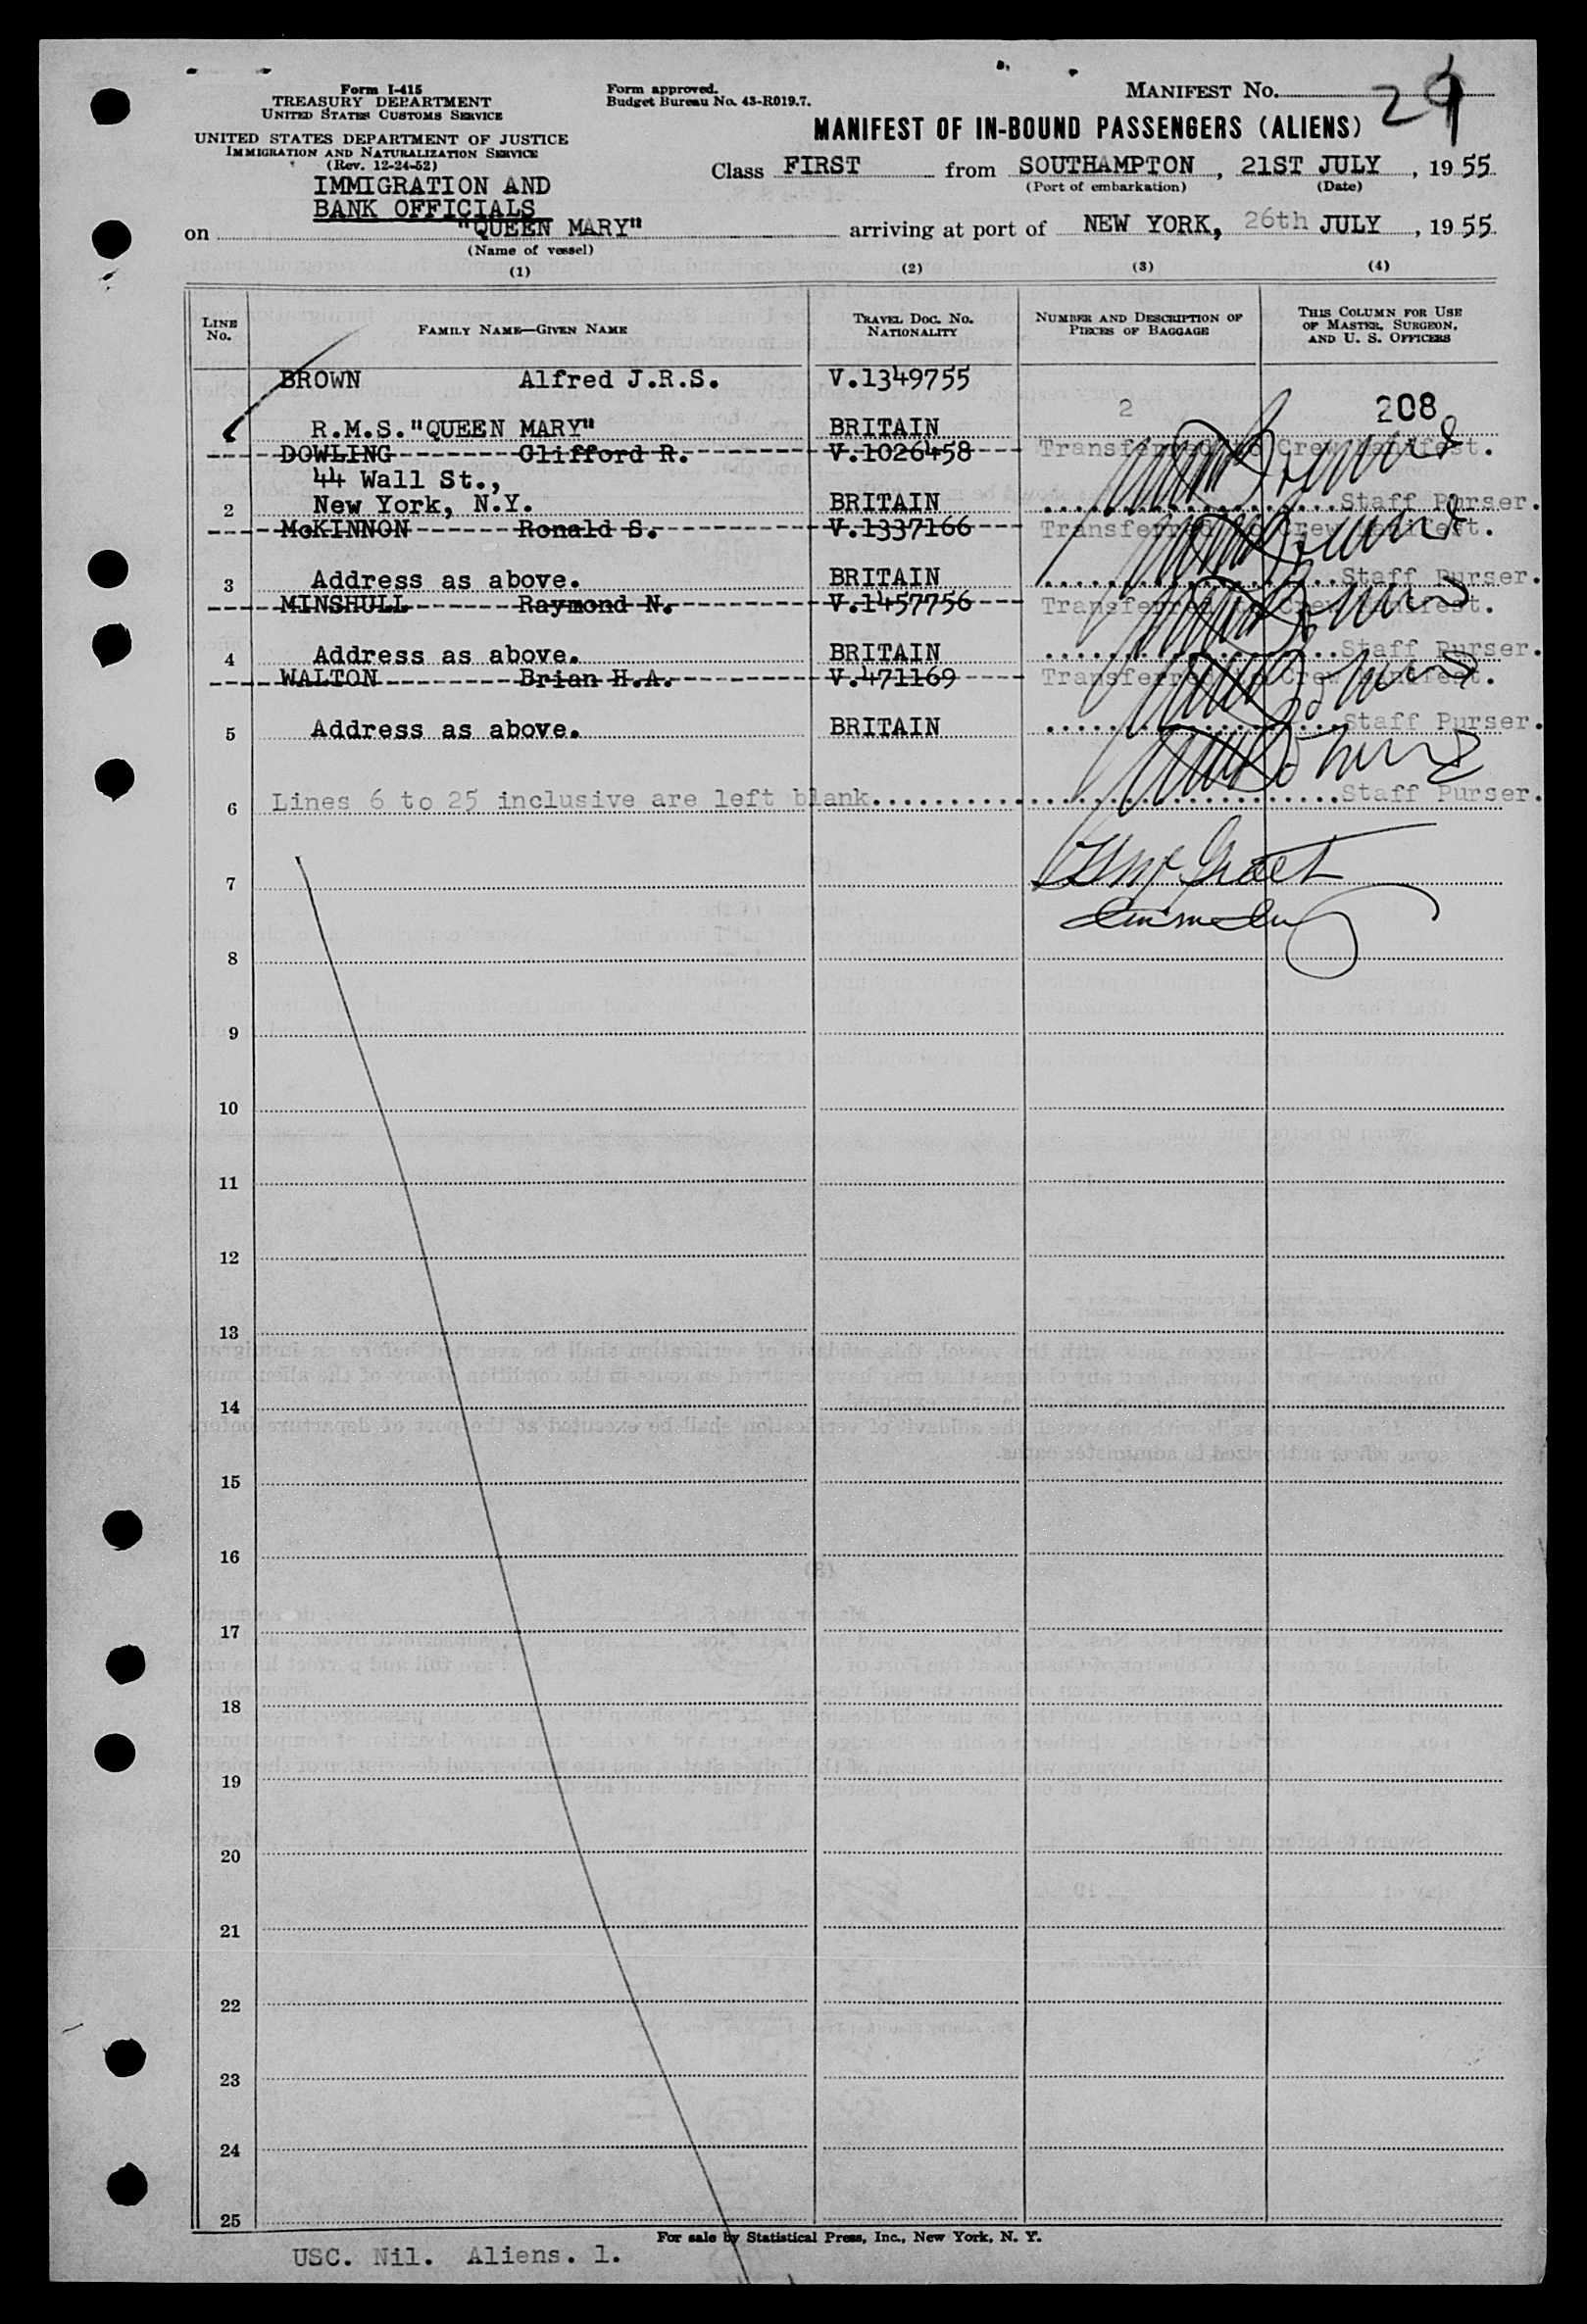 Form I-415
TREASURY DEPARTMENT
UNITED STATES CUSTOMS SERVICE
UNITED STATES DEPARTMENT OF JUSTICE
IMMIGRATION AND NATURALIZATION SERVICE
(Rev. 12-24-52)
IMMIGRATION AND
BANK OFFICIALS
Form approved.
Budget Bureau No. 43-R019.7.
MANIFEST NO. 29
MANIFEST OF IN-BOUND PASSENGERS (ALIENS)
Class FIRST from SOUTHAMPTON, 21ST JULY, 1955
(Port of embarkation) (Date)
on "QUEEN MARY" arriving at port of NEW YORK, 26th JULY, 1955
(Name of vessel)
(1) (2) (3) (4)
LINE NO. FAMILY NAME—GIVEN NAME TRAVEL DOC. NO. NATIONALITY NUMBER AND DESCRIPTION OF PIECES OF BAGGAGE THIS COLUMN FOR USE OF MASTER, SURGEON, AND U. S. OFFICERS
BROWN Alfred J.R.S. V.1349755
2 208
R.M.S."QUEEN MARY" BRITAIN
DOWLING Clifford R. V.1026458 Transferred to Crew Manifest.
44 Wall St.,
2 New York, N.Y. BRITAIN Staff Purser.
McKINNON Ronald S. V.1337166 Transferred to Crew Manifest.
3 Address as above. BRITAIN Staff Purser.
MINSHULL Raymond N. V.1457756 Transferred to Crew Manifest.
4 Address as above. BRITAIN Staff Purser.
WALTON Brian H.A. V.471169 Transferred to Crew Manifest.
5 Address as above. BRITAIN Staff Purser.
6 Lines 6 to 25 inclusive are left blank. Staff Purser.
7
8
9
10
11
12
13
14
15
16
17
18
19
20
21
22
23
24
25
For sale by Statistical Press, Inc., New York, N. Y.
USC. Nil. Aliens. 1.